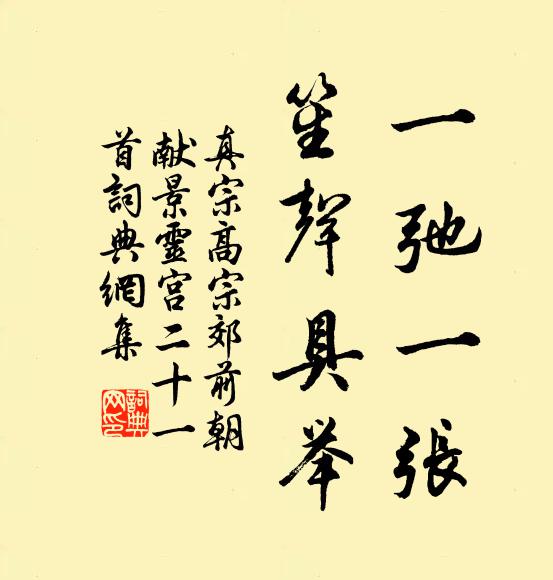 一弛一張
笙聲具举
真宗高宗郊前朝
献景靈宫二十一
首詞典網集
詞典
网印